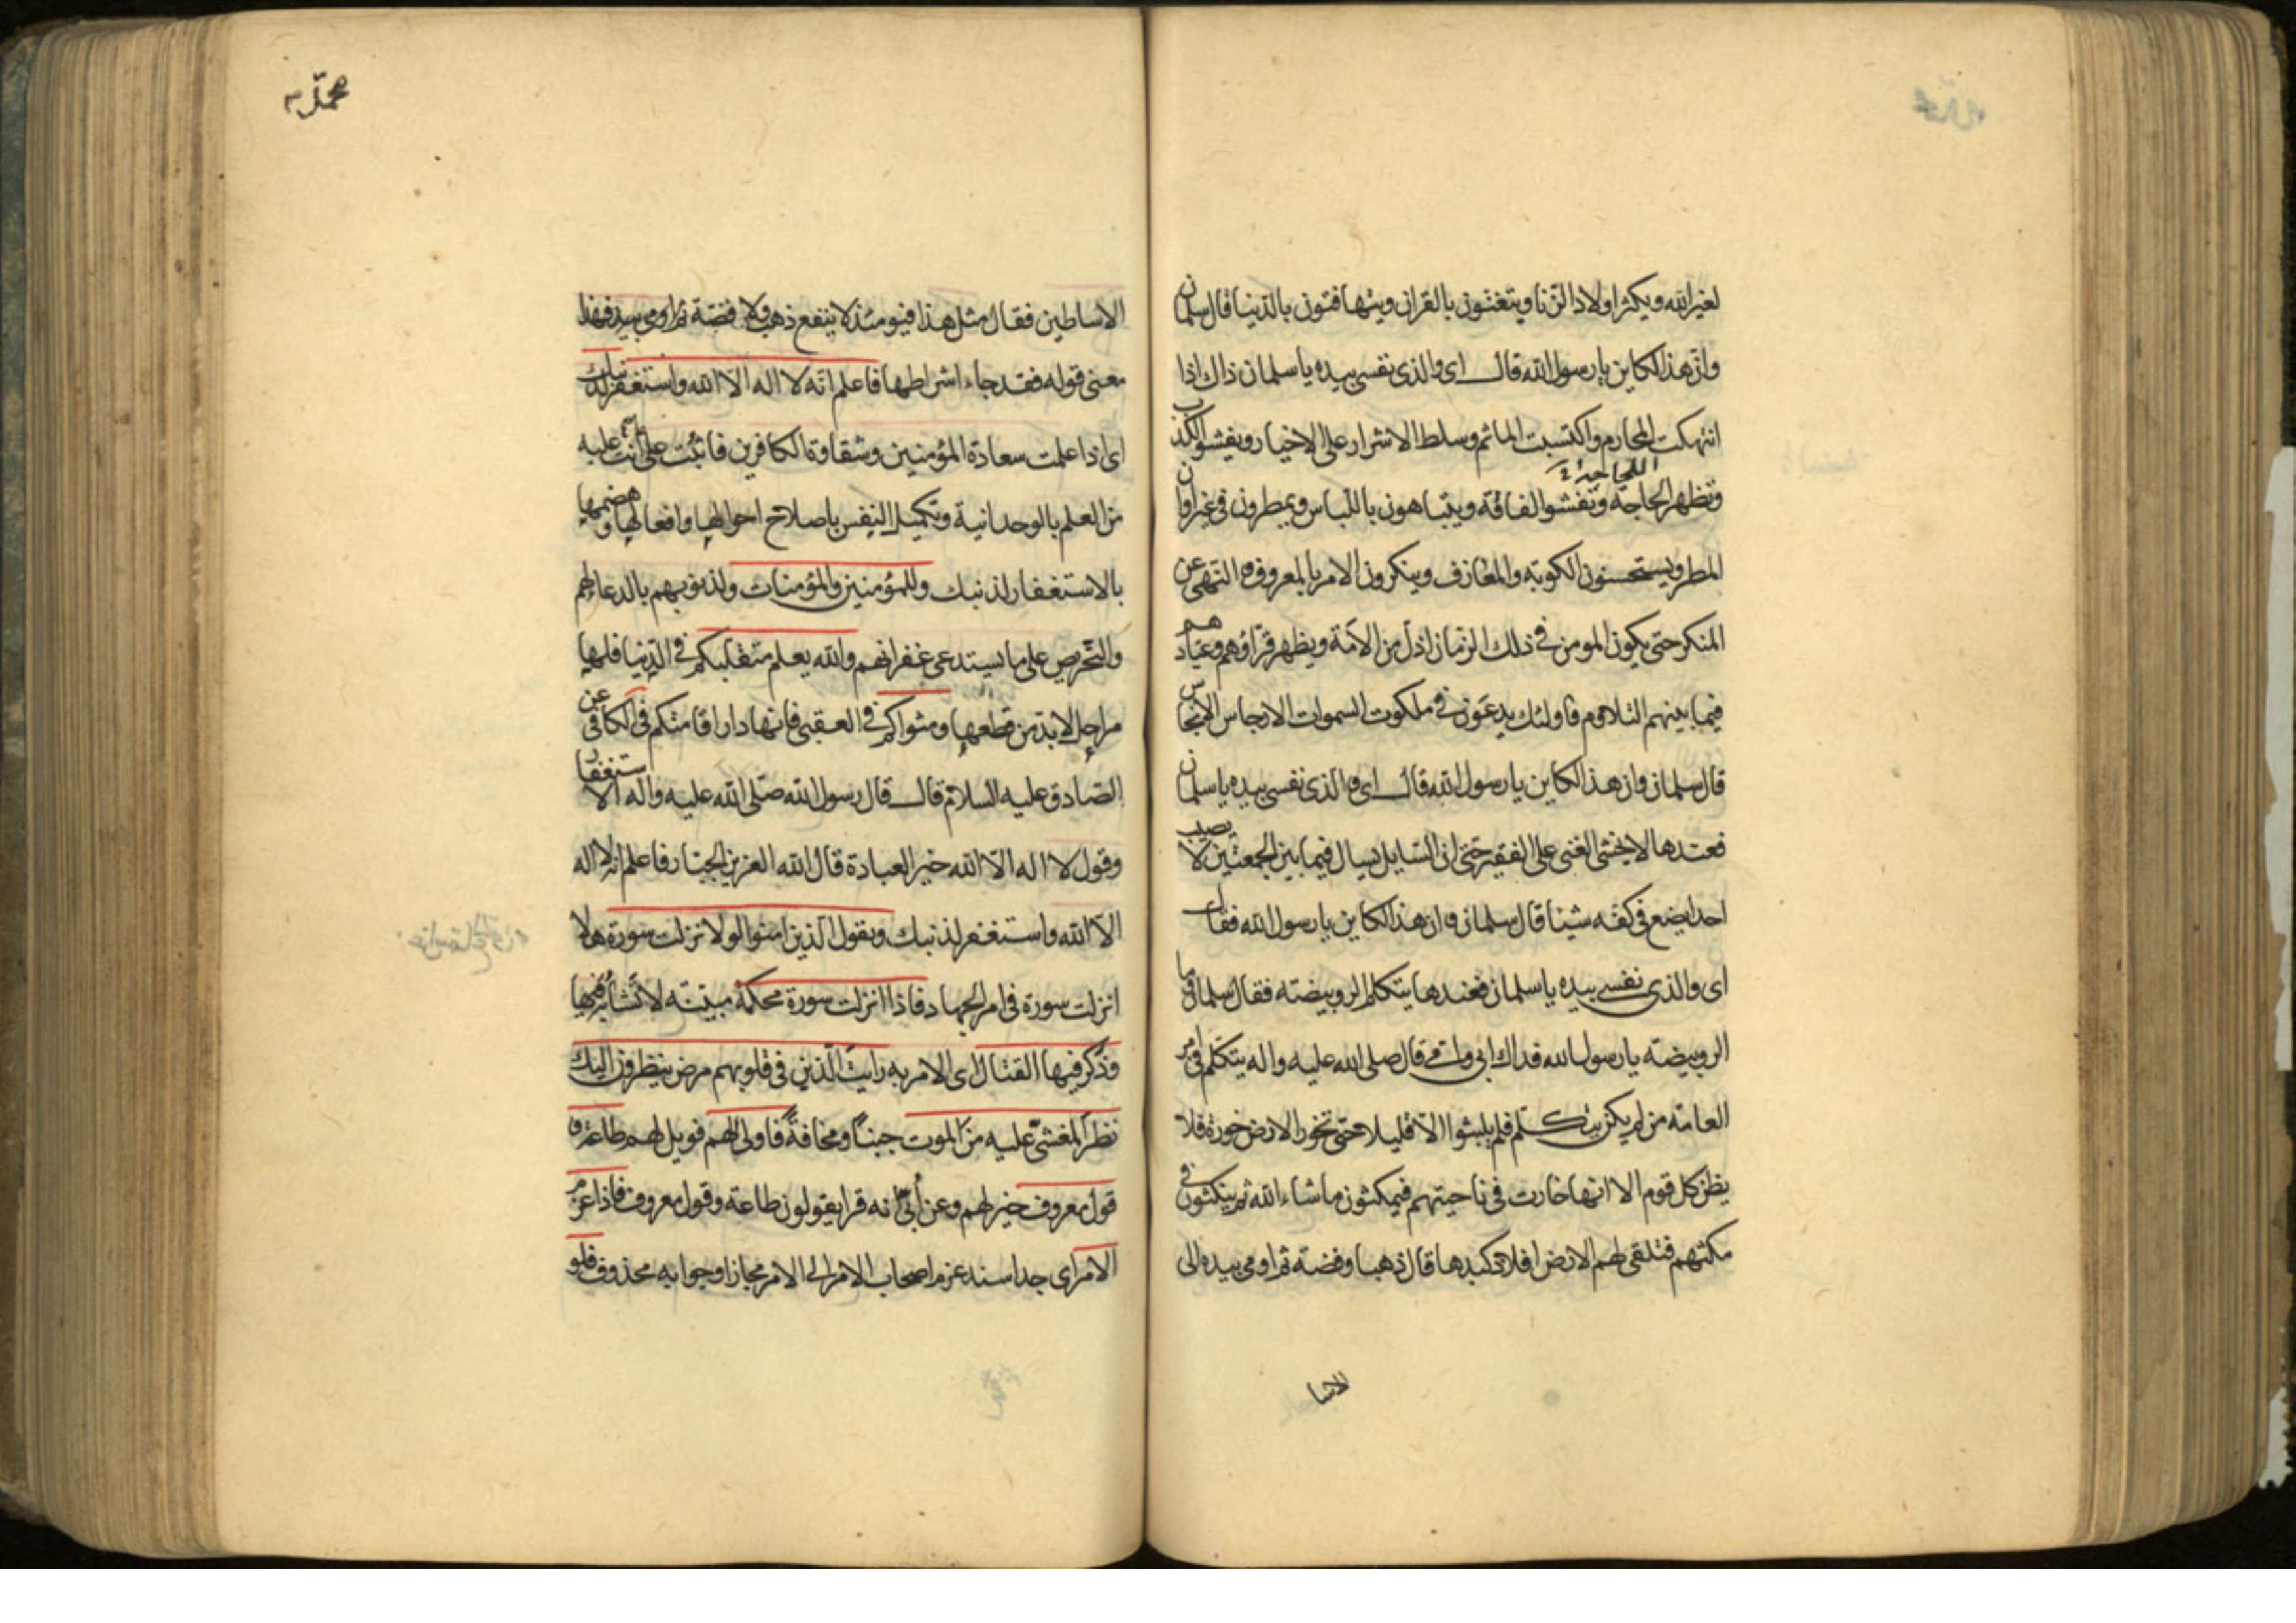 لغير الله ويكثر اولاد الزنا ويتغنون بالقران ويتهافتون بالدنيا قال سلمان
وان هذا لكاين يا رسول الله قال اى والذى نفسى بيده يا سلمان ذاك اذا
انتهكت المحارم واكتسبت الماثم وسلط الاشرار على الاخيار ويفشو الكذب
اللجاجة
وتظهر الحاجة وتفشو الفاقة ويتباهون باللباس ويمطرون فى غير اوان
المطر ويستحسنون الكوبة والمعازف وينكرون الامر بالمعروف و النهى عن
المنكر حتى يكون المومن فى ذلك الزمان اذل من الامة ويظهر قراؤهم وعبادهم
فيما بينهم التلاوم فاولئك يدعون فى ملكوت السموات الارجاس الانجاس
قال سلمان وان هذا لكاين يا رسول الله قال اى والذى نفسى بيده يا سلمان
فعندها لا يخشى الغنى على الفقير حتى ان السايل يسال فيما بين الجمعتين لا يصيب
احدا يضع فى كفه شيئا قال سلمان و ان هذا لكاين يا رسول الله فقال
اى والذى نفسى بيده يا سلمان فعندها يتكلم الرويبضة فقال سلمان وما
الرويبضة يا رسول الله فداك ابى وامى قال صلى الله عليه واله يتكلم فى امر
العامة من لم يكن يتكلم فلم يلبثوا الا قليلا حتى تخور الارض خورة فلا
يظن كل قوم الا انها خارت فى ناحيتهم فيمكثون ما شاء الله ثم ينكثون فى
مكثهم فتلقى لهم الارض افلاذ كبدها قال ذهبا وفضة ثم اومى بيده الى
الاسا
محمد
الاساطين فقال مثل هذا فيومئذ لا ينفع ذهب ولا فضة ثم اومى بيده فهذا
معنى قوله فقد جاء اشراطها فاعلم انه لا اله الا الله واستغفر لذنبك
اى اذا علمت سعادة المؤمنين وشقاوة الكافرين فاثبت على ما انت عليه
من العلم بالوحدانية وتكميل النفس باصلاح احوالها وافعالها وهضمها
بالاستغفار لذنبك وللمؤمنين والمؤمنات ولذنوبهم بالدعاء لهم
والتحريص على ما يستدعى غفرانهم والله يعلم متقلبكم فى الدنيا فلها
مراحل لا بد من قطعها ومثواكم فى العقبى فانها دار اقامتكم فى الكافى عن
الصادق عليه السلام قال قال رسول الله صلى الله عليه واله الاستغفار
وقول لا اله الا الله خير العبادة قال الله العزيز الجبار فاعلم انه لا اله
الا الله واستغفر لذنبك ويقول الذين امنوا لولا نزلت سورة هلا
انزلت سورة فى امر الجهاد فاذا انزلت سورة محكمة مبينة لا تشابه فيها
وذكر فيها القتال اى الامر به رايت الذين فى قلوبهم مرض ينظرون اليك
نظر المغشى عليه من الموت جبنا ومخافة فاولى لهم فويل لهم طاعة و
قول معروف خير لهم وعن أبى انه قرا يقولون طاعة وقول معروف فاذا عزم
الامر اى جد اسند عزم اصحاب الامر الى الامر مجازا وجوابه محذوف فلو